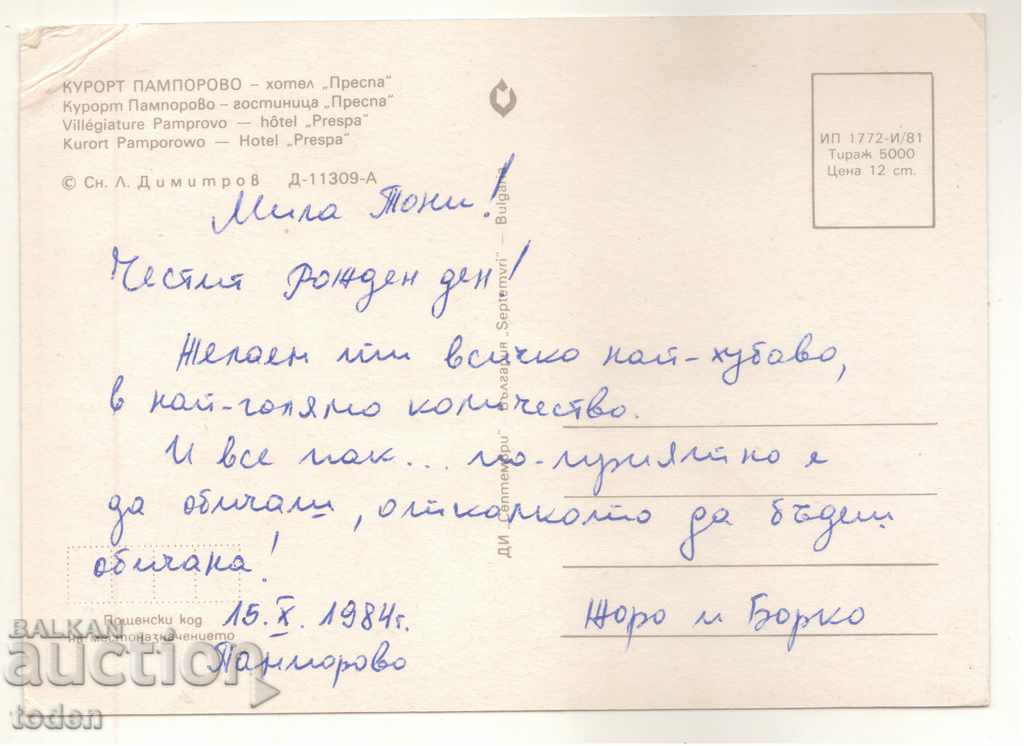 КУРОРТ ПАМПОРОВО – хотел „Преспа"
Курорт Пампорово – гостиница „Преспа"
Villégiature Pamprovo — hôtel „Prespa"
Kurort Pamporowo — Hotel „Prespa"
© Сн. Л. Димитров Д-11309-А
ИП 1772-И/81
Тираж 5000
Цена 12 ст.
ДИ „Септември" – България „Septemvri" – Bulgaria
Мила Тони!
Честит рожден ден!
Желаем ти всичко най-хубаво,
в най-голямо количество.
И все пак... по-приятно е
да обичаш, отколкото да бъдеш
обичана!
15.X.1984г.
Пампорово
Жоро и Борко
Пощенски код
на местоназначението
BALKAN
auction
toden